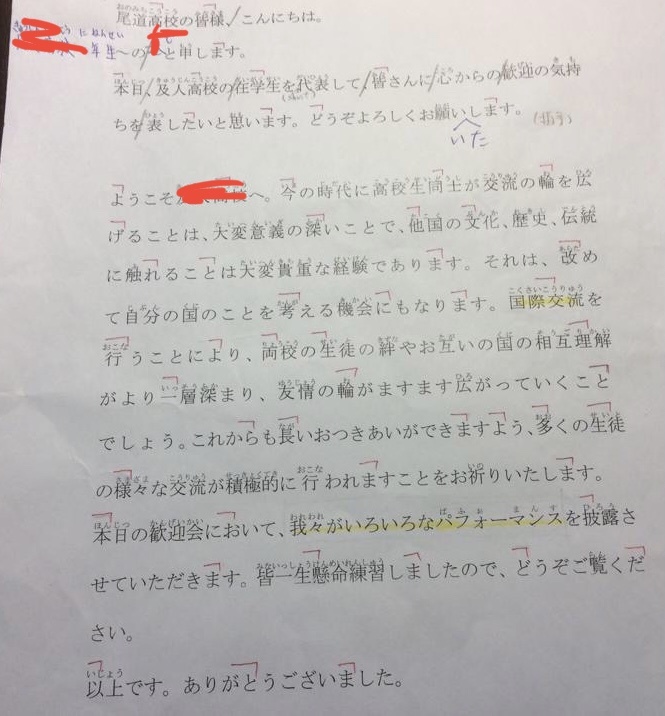 尾道高校の皆様、こんにちは。
年生への と申します。
本日、及人高校の在学生を代表して、皆さんに心からの歓迎の気持
ちを表したいと思います。どうぞよろしくお願いします。
いた
ようこそ へ。今の時代に高校生同士が交流の輪を広
げることは、大変意義の深いことで、他国の文化、歴史、伝統
に触れることは大変貴重な経験であります。それは、改め
て自分の国のことを考える機会にもなります。国際交流を
行うことにより、両校の生徒の絆やお互いの国の相互理解
がより一層深まり、友情の輪がますます広がっていくこと
でしょう。これからも長いおつきあいができますよう、多くの生徒
の様々な交流が積極的に行われますことをお祈りいたします。
本日の歓迎会において、我々がいろいろなパフォーマンスを披露さ
せていただきます。皆一生懸命練習しましたので、どうぞご覧くだ
さい。
以上です。ありがとうございました。